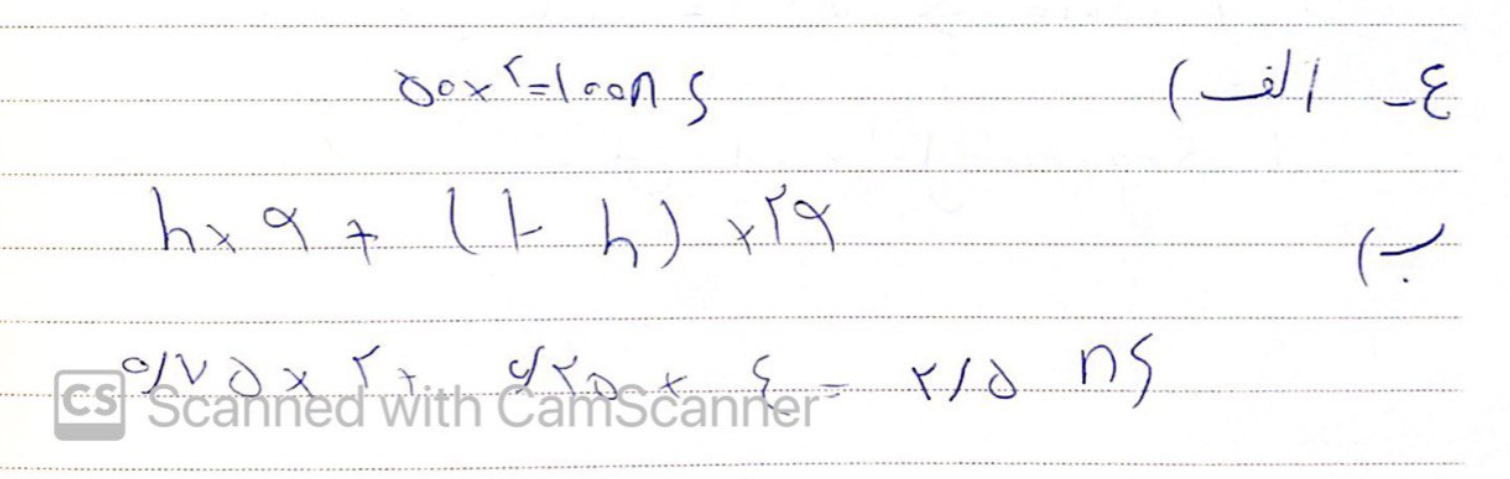 ٤- الف) ۵۰×۲=۱۰۰ns
ب) h×α + (1-h)×۲α
۰/۷۵×۲+ ۰/۲۵×٤=۲/۵ ns
CS Scanned with CamScanner